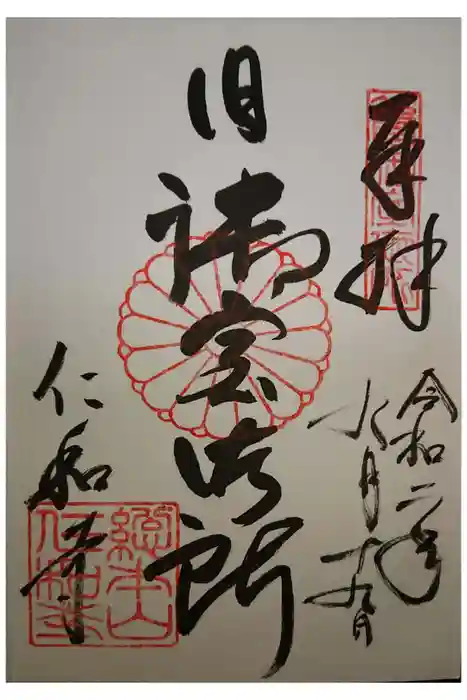 奉拝
令和二年
六月十九日
旧御室御所
仁和寺
總本山
仁和寺